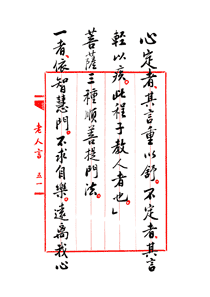 心定者、其言重以舒。不定者、其言
輕以疾。此程子教人者也。」
菩薩三種順菩提門法。
一者、依智慧門。不求自樂。遠離我心
老人言 五一